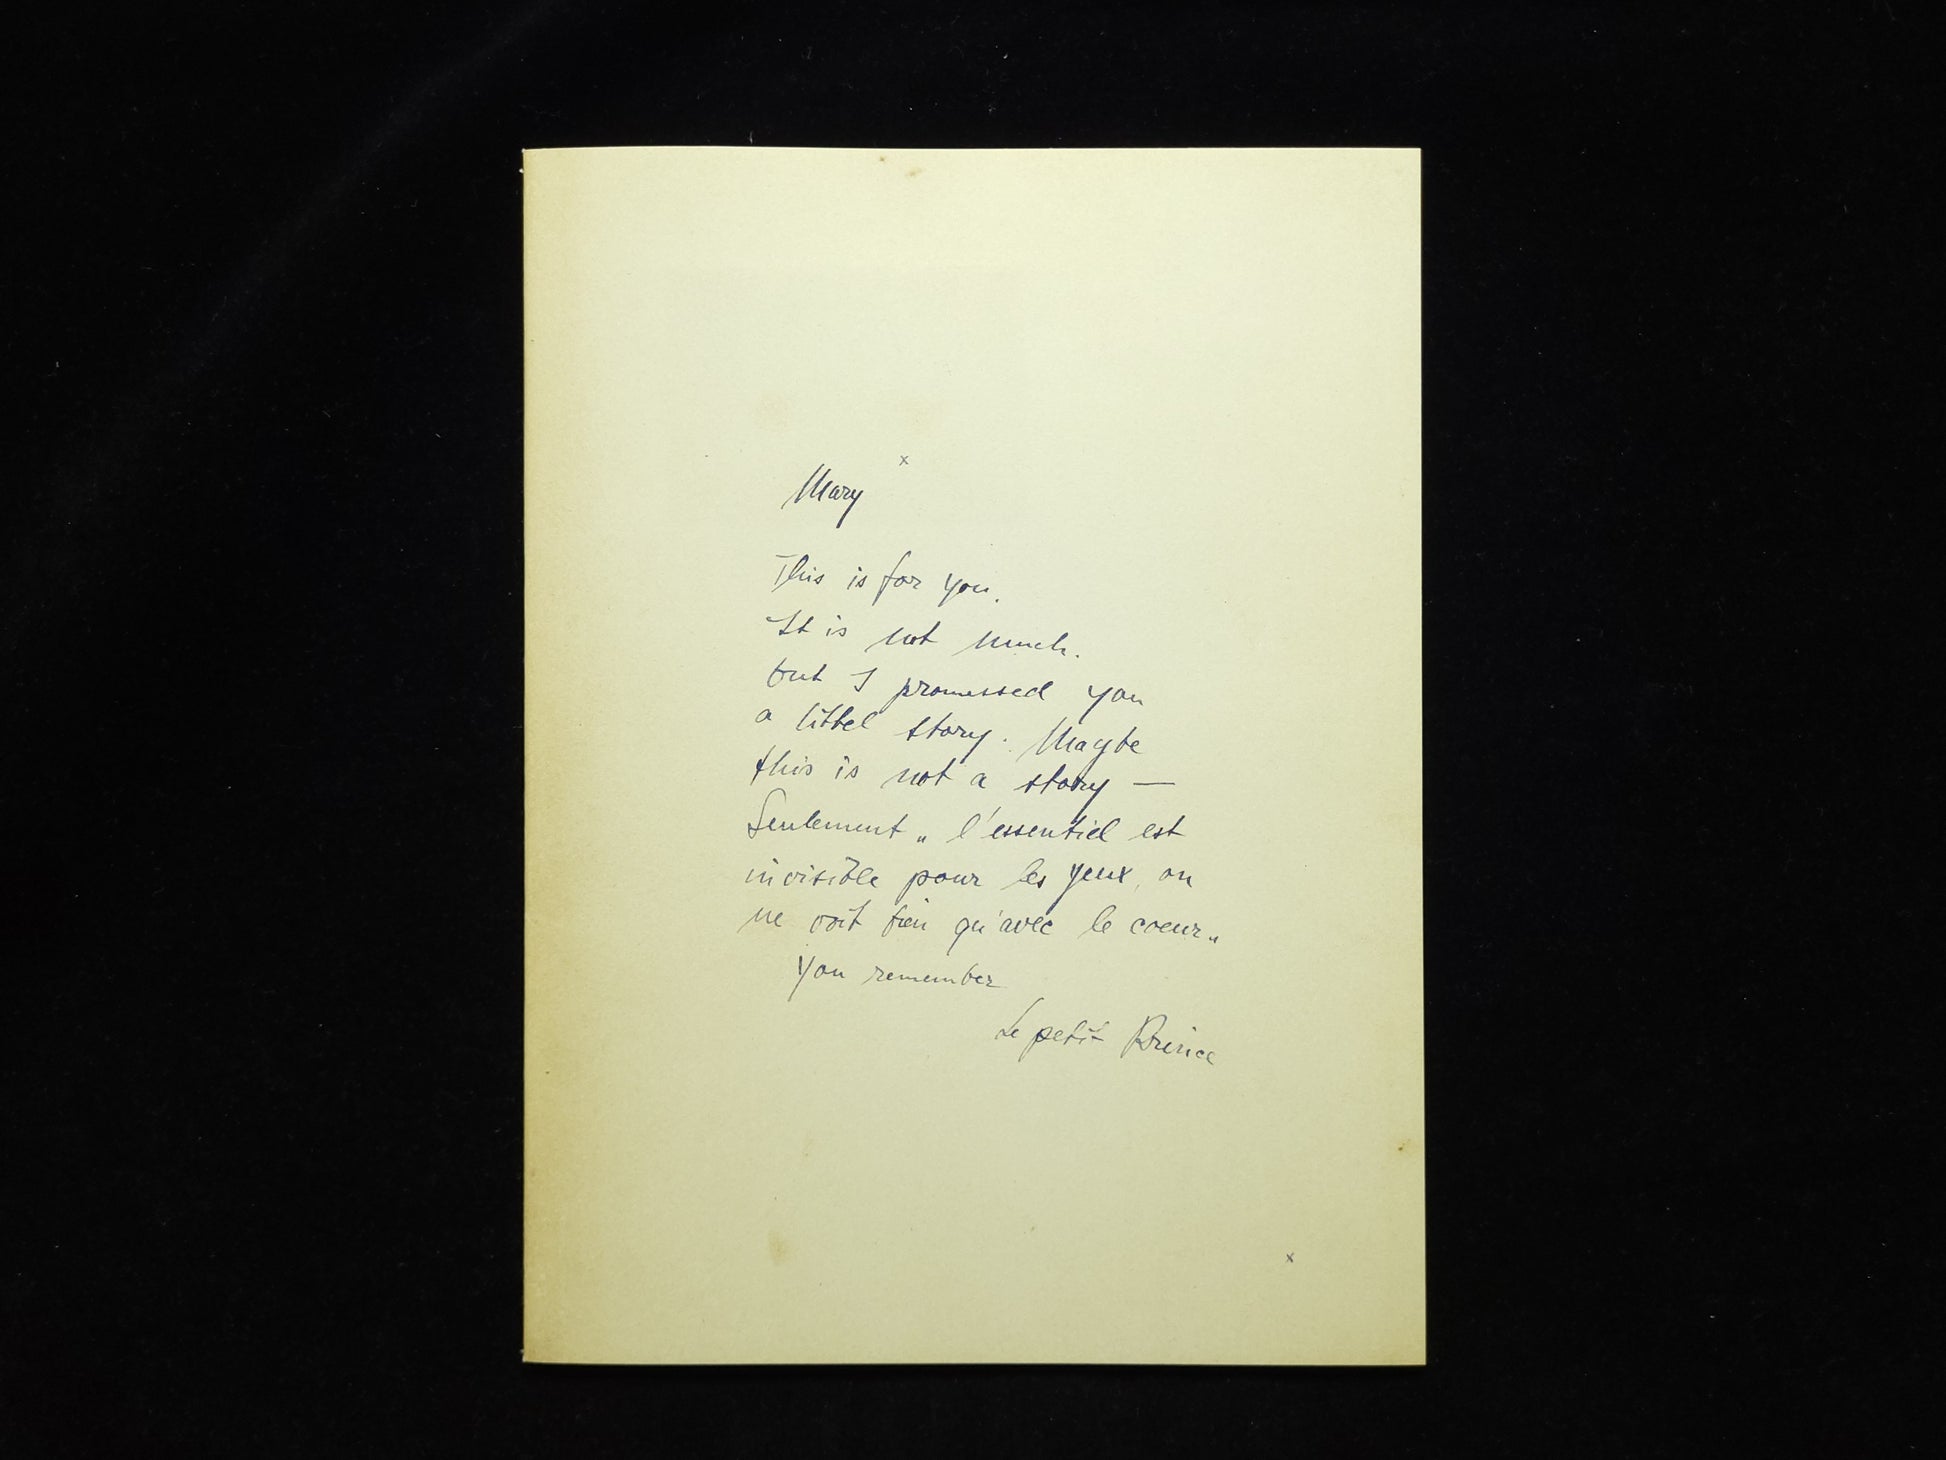 x
Mary
This is for you.
It is not much.
but I promessed you
a littel story. Maybe
this is not a story —
Seulement „ l'essentiel est
invisible pour les yeux, on
ne voit bien qu'avec le coeur„
You remember
Le petit Prince
x